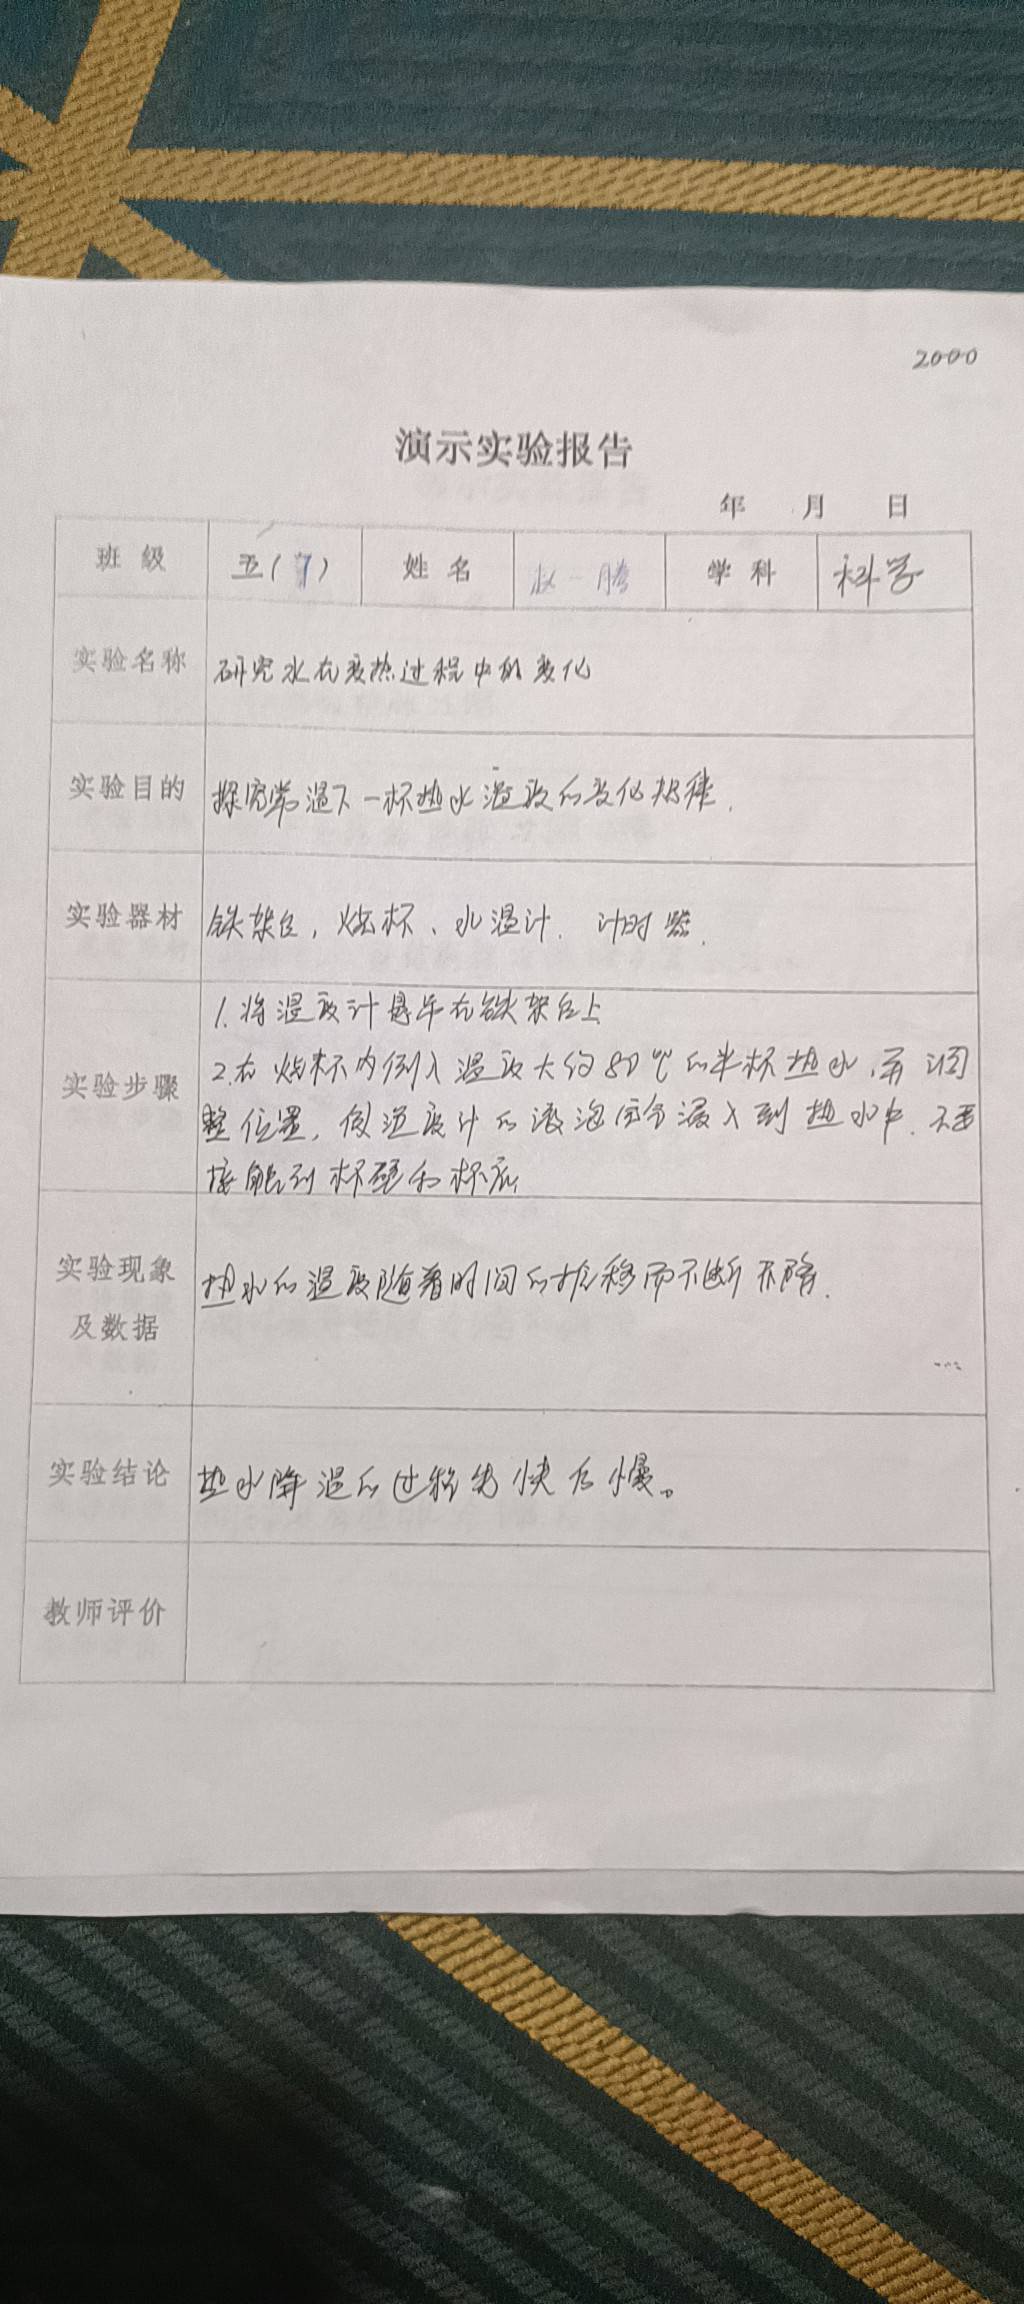 2000
演示实验报告
年 月 日
班 级 五( ) 姓 名 赵一腾 学 科 科学
实验名称 研究水在变热过程中的变化
实验目的 探究常温下一杯热水温度的变化规律.
实验器材 铁架台, 烧杯、水温计. 计时器.
1. 将温度计悬吊在铁架台上
实验步骤 2.在烧杯内倒入温度大约80℃的半杯热水,并调
整位置, 使温度计的液泡部分浸入到热水中.不要
接触到杯壁和杯底
实验现象 热水的温度随着时间的推移而不断下降.
及数据
实验结论 热水降温的过程先快后慢。
教师评价